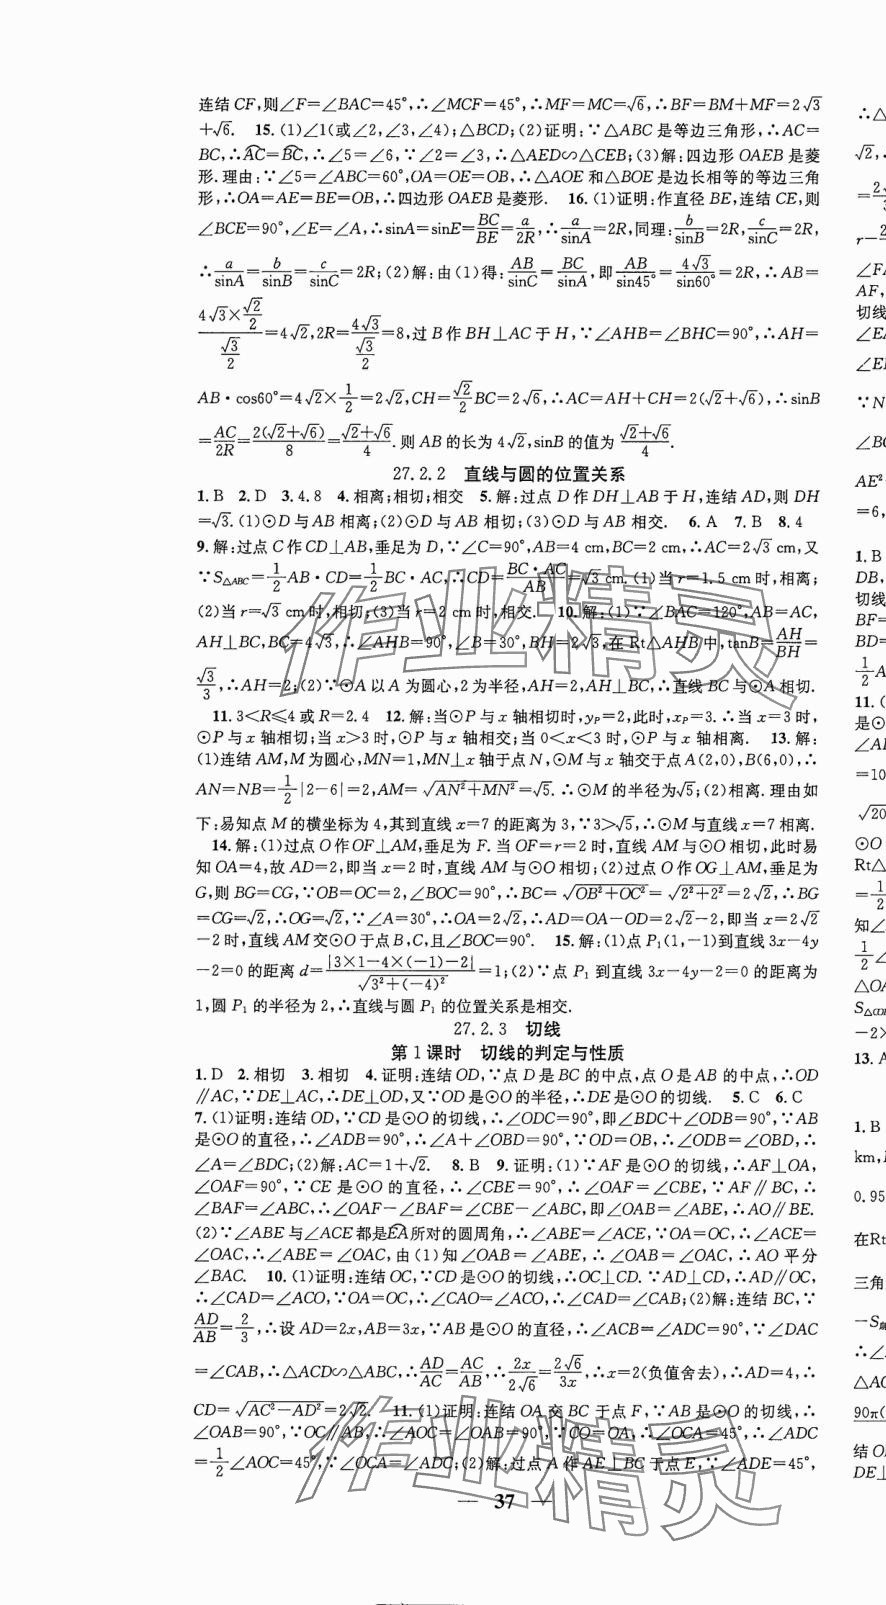 连结 CF,则∠F=∠BAC=45°,∴∠MCF=45°,∴MF=MC=√6,∴BF=BM+MF=2√3
+√6. 15.(1)∠1(或∠2,∠3,∠4);△BCD;(2)证明:∵△ABC 是等边三角形,∴AC=
BC,∴AC⌒=BC⌒,∴∠5=∠6,∵∠2=∠3,∴△AED∽△CEB;(3)解:四边形 OAEB 是菱
形.理由:∵∠5=∠ABC=60°,OA=OE=OB,∴△AOE 和△BOE 是边长相等的等边三角
形,∴OA=AE=BE=OB,∴四边形 OAEB 是菱形. 16.(1)证明:作直径 BE,连结 CE,则
∠BCE=90°,∠E=∠A,∴sinA=sinE=BC/BE=a/2R,∴a/sinA=2R,同理:b/sinB=2R,c/sinC=2R,
∴a/sinA=b/sinB=c/sinC=2R;(2)解:由(1)得:AB/sinC=BC/sinA,即AB/sin45°=4√3/sin60°=2R,∴AB=
(4√3×√2/2)/(√3/2)=4√2,2R=4√3/(√3/2)=8,过 B 作 BH⊥AC 于 H,∵∠AHB=∠BHC=90°,∴AH=
AB·cos60°=4√2×1/2=2√2,CH=√2/2BC=2√6,∴AC=AH+CH=2(√2+√6),∴sinB
=AC/2R=2(√2+√6)/8=(√2+√6)/4.则 AB 的长为 4√2,sinB 的值为(√2+√6)/4.
27.2.2 直线与圆的位置关系
1.B 2.D 3.4.8 4.相离;相切;相交 5.解:过点 D 作 DH⊥AB 于 H,连结 AD,则 DH
=√3.(1)⊙D 与 AB 相离;(2)⊙D 与 AB 相切;(3)⊙D 与 AB 相交. 6.A 7.B 8.4
9.解:过点 C 作 CD⊥AB,垂足为 D,∵∠C=90°,AB=4 cm,BC=2 cm,∴AC=2√3 cm,又
∵S△ABC=1/2AB·CD=1/2BC·AC,∴CD=BC·AC/AB=√3 cm.(1)当 r=1.5 cm 时,相离;
(2)当 r=√3 cm 时,相切;(3)当 r=2 cm 时,相交. 10.解:(1)∵∠BAC=120°,AB=AC,
AH⊥BC,BC=4√3,∴∠AHB=90°,∠B=30°,BH=2√3,在 Rt△AHB 中,tanB=AH/BH=
√3/3,∴AH=2;(2)∵⊙A 以 A 为圆心,2 为半径,AH=2,AH⊥BC,∴直线 BC 与⊙A 相切.
11.3<R≤4 或 R=2.4 12.解:当⊙P 与 x 轴相切时,yP=2,此时,xP=3.∴当 x=3 时,
⊙P 与 x 轴相切;当 x>3 时,⊙P 与 x 轴相交;当 0<x<3 时,⊙P 与 x 轴相离. 13.解:
(1)连结 AM,M 为圆心,MN=1,MN⊥x 轴于点 N,⊙M 与 x 轴交于点 A(2,0),B(6,0),∴
AN=NB=1/2|2-6|=2,AM=√(AN²+MN²)=√5.∴⊙M 的半径为√5;(2)相离.理由如
下:易知点 M 的横坐标为 4,其到直线 x=7 的距离为 3,∵3>√5,∴⊙M 与直线 x=7 相离.
14.解:(1)过点 O 作 OF⊥AM,垂足为 F.当 OF=r=2 时,直线 AM 与⊙O 相切,此时易
知 OA=4,故 AD=2,即当 x=2 时,直线 AM 与⊙O 相切;(2)过点 O 作 OG⊥AM,垂足为
G,则 BG=CG,∵OB=OC=2,∠BOC=90°,∴BC=√(OB²+OC²)=√(2²+2²)=2√2,∴BG
=CG=√2,∴OG=√2,∵∠A=30°,∴OA=2√2,∴AD=OA-OD=2√2-2,即当 x=2√2
-2 时,直线 AM 交⊙O 于点 B,C,且∠BOC=90°. 15.解:(1)点 P₁(1,-1)到直线 3x-4y
-2=0 的距离 d=|3×1-4×(-1)-2|/√(3²+(-4)²)=1;(2)∵点 P₁ 到直线 3x-4y-2=0 的距离为
1,圆 P₁ 的半径为 2,∴直线与圆 P₁ 的位置关系是相交.
27.2.3 切线
第 1 课时 切线的判定与性质
1.D 2.相切 3.相切 4.证明:连结 OD,∵点 D 是 BC 的中点,点 O 是 AB 的中点,∴OD
∥AC,∵DE⊥AC,∴DE⊥OD,又∵OD 是⊙O 的半径,∴DE 是⊙O 的切线. 5.C 6.C
7.(1)证明:连结 OD,∵CD 是⊙O 的切线,∴∠ODC=90°,即∠BDC+∠ODB=90°,∵AB
是⊙O 的直径,∴∠ADB=90°,∴∠A+∠OBD=90°,∵OD=OB,∴∠ODB=∠OBD,∴
∠A=∠BDC;(2)解:AC=1+√2. 8.B 9.证明:(1)∵AF 是⊙O 的切线,∴AF⊥OA,
∠OAF=90°,∵CE 是⊙O 的直径,∴∠CBE=90°,∴∠OAF=∠CBE,∵AF∥BC,∴
∠BAF=∠ABC,∴∠OAF-∠BAF=∠CBE-∠ABC,即∠OAB=∠ABE,∴AO∥BE.
(2)∵∠ABE 与∠ACE 都是EA⌒所对的圆周角,∴∠ABE=∠ACE,∵OA=OC,∴∠ACE=
∠OAC,∴∠ABE=∠OAC,由(1)知∠OAB=∠ABE,∴∠OAB=∠OAC,∴AO 平分
∠BAC. 10.(1)证明:连结 OC,∵CD 是⊙O 的切线,∴OC⊥CD.∵AD⊥CD,∴AD∥OC,
∴∠CAD=∠ACO,∵OA=OC,∴∠CAO=∠ACO,∴∠CAD=∠CAB;(2)解:连结 BC,∵
AD/AB=2/3,∴设 AD=2x,AB=3x,∵AB 是⊙O 的直径,∴∠ACB=∠ADC=90°,∵∠DAC
=∠CAB,∴△ACD∽△ABC,∴AD/AC=AC/AB,∴2x/2√6=2√6/3x,∴x=2(负值舍去),∴AD=4,∴
CD=√(AC²-AD²)=2√2. 11.(1)证明:连结 OA 交 BC 于点 F,∵AB 是⊙O 的切线,∴
∠OAB=90°,∵OC∥AB,∴∠AOC=∠OAB=90°,∵CO=OA,∴∠OCA=45°,∴∠ADC
=1/2∠AOC=45°,∵∠OCA=∠ADC;(2)解:过点 A 作 AE⊥BC 于点 E,∵∠ADE=45°,
— 37 —
作业精灵
作业精灵